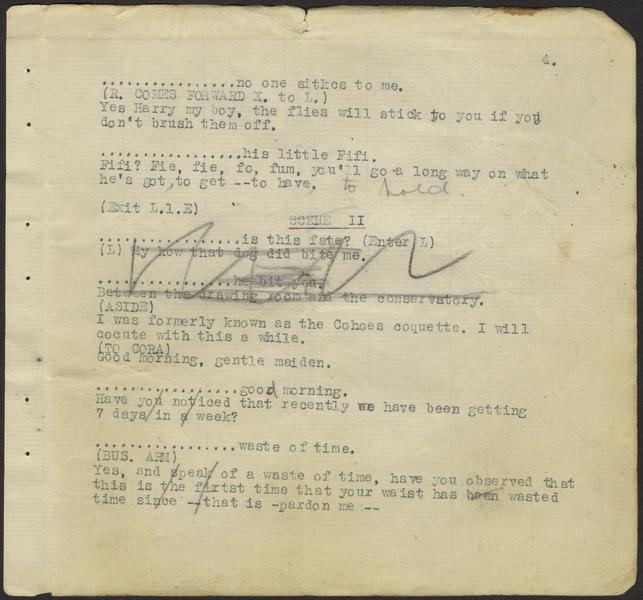 4.
................no one sitkcs to me.
(R. COMES FORWARD X. to L.)
Yes Harry my boy, the flies will stick to you if you
don't brush them off.
.................his little Fifi.
Fifi? Fie, fie, fo, fum, you'll go a long way on what
he's got, to get --to have. to hold.
(Exit L.1.E)
SCENE II
.................is this fate? (Enter L)
(L) My how that dog did bite me.
.................he bit you.
Between the drawing room and the conservatory.
(ASIDE)
I was formerly known as the Cohoes coquette. I will
cocute with this a while.
(TO CORA)
Good morning, gentle maiden.
.................good morning.
Have you noticed that recently we have been getting
7 days in a week?
.................waste of time.
(BUS. ARM)
Yes, and speak of a waste of time, have you observed that
this is the firtst time that your waist has been wasted
time since --that is -pardon me --